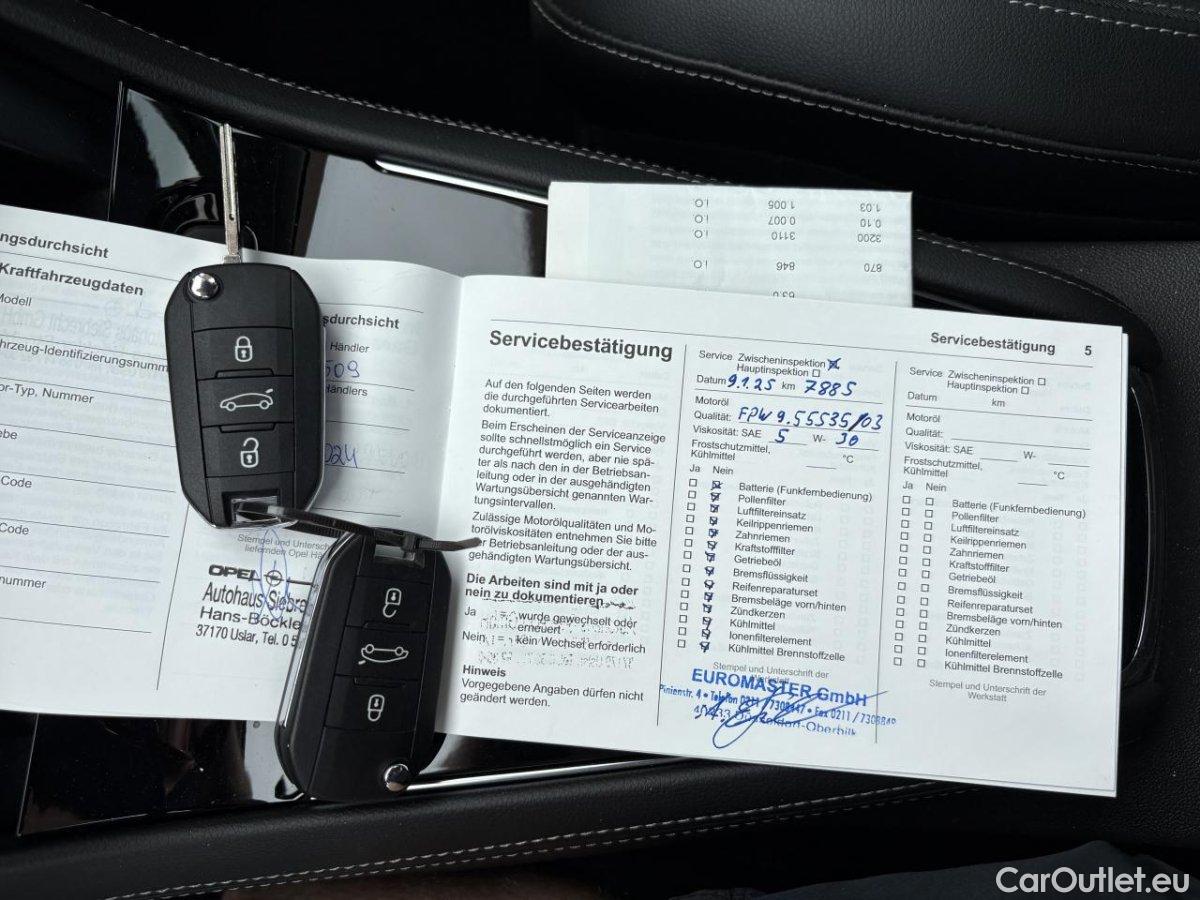 ngsdurchsicht
Kraftfahrzeugdaten
Modell
hrzeug-Identifizierungsnumm
or-Typ, Nummer
Code
Code
nummer
sdurchsicht
Händler
509
ändlers
024
Stempel und Unterschrif
liefernden Opel Hä
OPEL
Autohaus Siebre
Hans-Böckle
37170 Uslar, Tel. 0 5
1.03 1.005 i.O
0.10 0.007 i.O
3200 3110 i.O
870 846 i.O
63.0
Servicebestätigung
Auf den folgenden Seiten werden
die durchgeführten Servicearbeiten
dokumentiert.
Beim Erscheinen der Serviceanzeige
sollte schnellstmöglich ein Service
durchgeführt werden, aber nie spä-
ter als nach den in der Betriebsan-
leitung oder in der ausgehändigten
Wartungsübersicht genannten War-
tungsintervallen.
Zulässige Motorölqualitäten und Mo-
torölviskositäten entnehmen Sie bitte
er Betriebsanleitung oder der aus-
gehändigten Wartungsübersicht.
Die Arbeiten sind mit ja oder
nein zu dokumentieren
Ja wurde gewechselt oder
erneuert
Nein = kein Wechsel erforderlich
Hinweis
Vorgegebene Angaben dürfen nicht
geändert werden.
Service Zwischeninspektion
Hauptinspektion
Datum 9.1.25 km 7885
Motoröl
Qualität: FPW 9.55535/03
Viskosität: SAE 5 W- 30
Frostschutzmittel,
Kühlmittel °C
Ja Nein
Batterie (Funkfernbedienung)
Pollenfilter
Luftfiltereinsatz
Keilrippenriemen
Zahnriemen
Kraftstofffilter
Getriebeöl
Bremsflüssigkeit
Reifenreparaturset
Bremsbeläge vorn/hinten
Zündkerzen
Kühlmittel
Ionenfilterelement
Kühlmittel Brennstoffzelle
Stempel und Unterschrift der
Werkstatt
EUROMASTER GmbH
Pinienstr. 4 • Telefon 0211 / 7308847 • Fax 0211 / 7308849
40233 Düsseldorf-Oberbilk
Servicebestätigung 5
Service Zwischeninspektion
Hauptinspektion
Datum km
Motoröl
Qualität:
Viskosität: SAE W-
Frostschutzmittel,
Kühlmittel °C
Ja Nein
Batterie (Funkfernbedienung)
Pollenfilter
Luftfiltereinsatz
Keilrippenriemen
Zahnriemen
Kraftstofffilter
Getriebeöl
Bremsflüssigkeit
Reifenreparaturset
Bremsbeläge vorn/hinten
Zündkerzen
Kühlmittel
Ionenfilterelement
Kühlmittel Brennstoffzelle
Stempel und Unterschrift der
Werkstatt
CarOutlet.eu